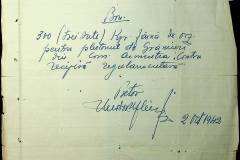 Bon.
300 (trei sute) Kgr făină de orz
pentru plutonul de Grăniceri
din com. contra
recipisă regulamentară
Pretor
2 1942